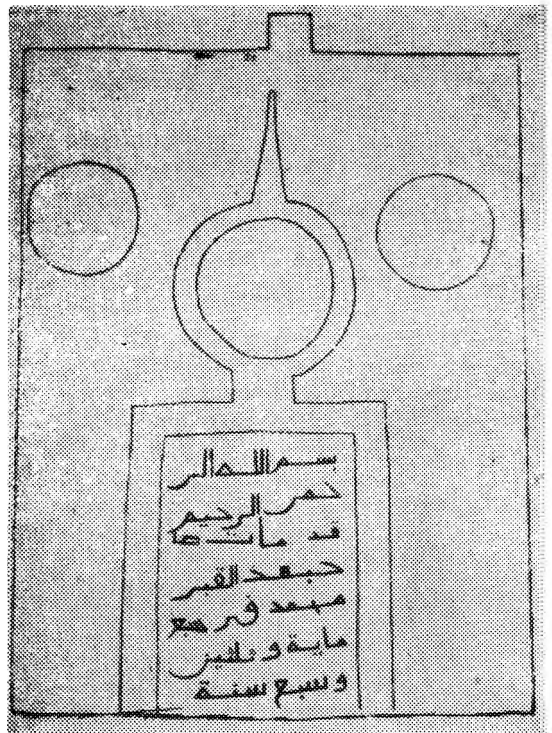 بسم الله الر
حمن الرحيم
قد مات صا
حب هد القبر
محمد في سبع
ماية و ثلثين
و سبع سنة